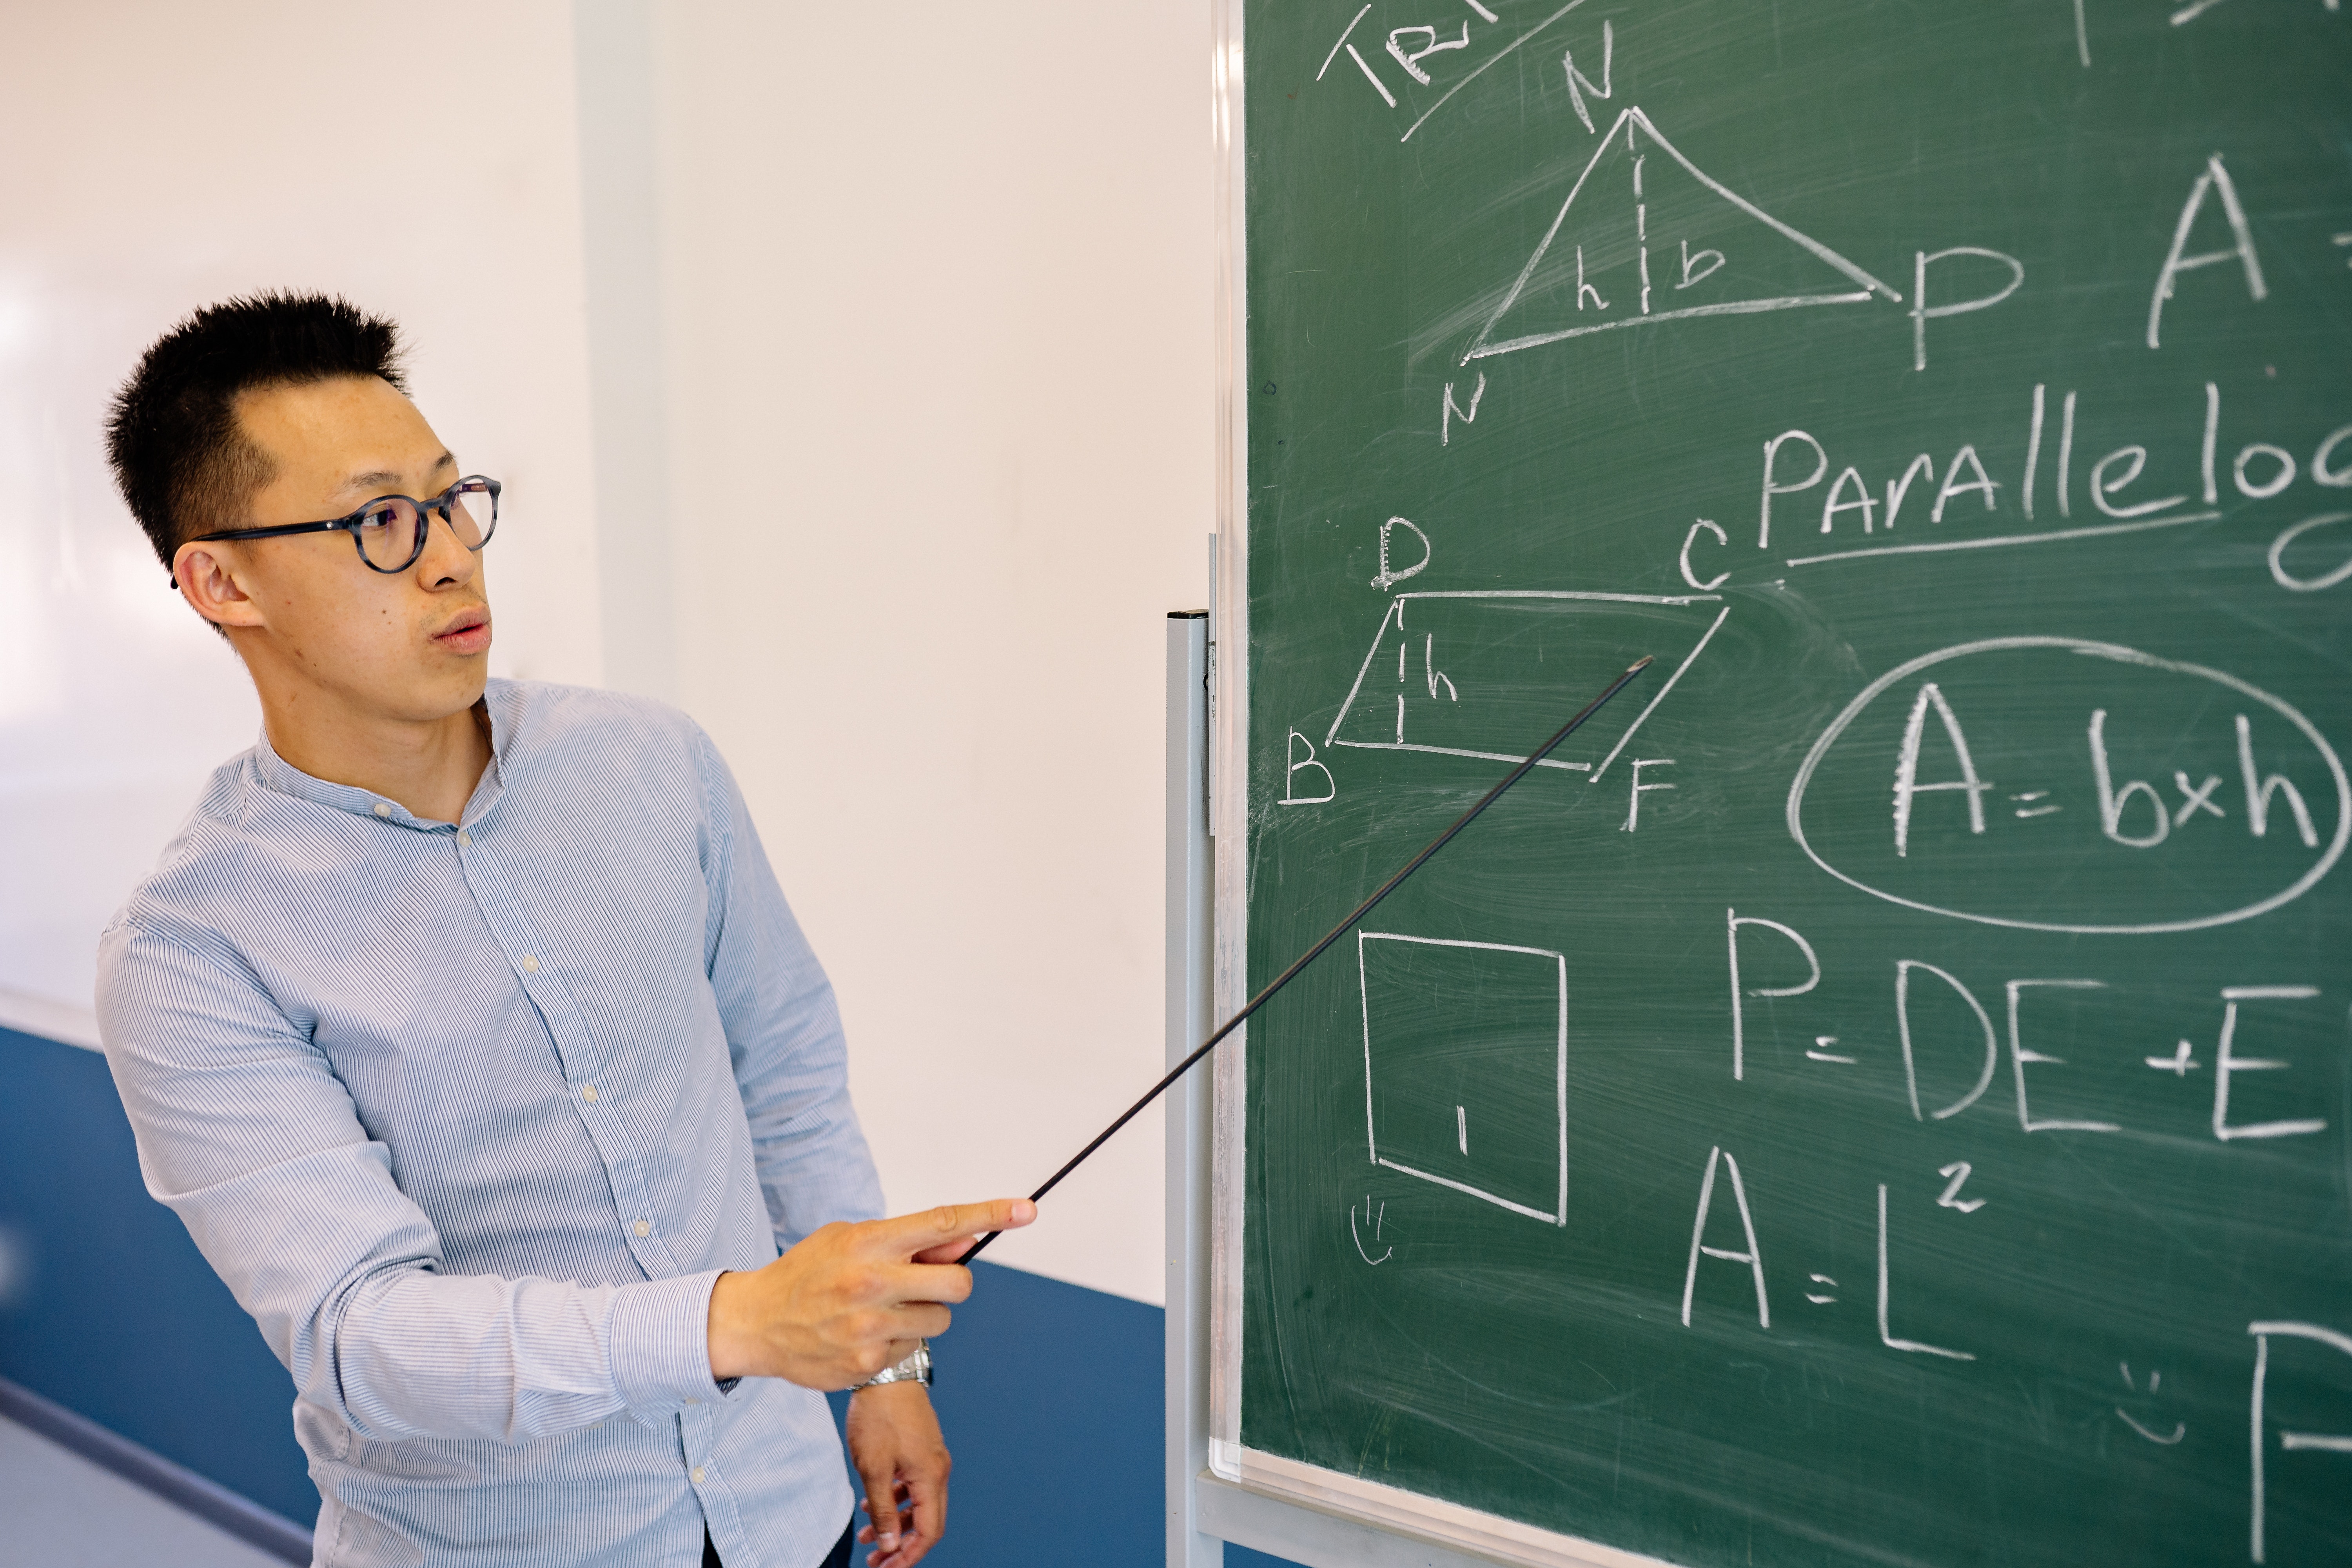 TRI
N
h b
P
N
A =
Parallelog
D
C
h
B
F
A = b×h
P = DE + E
A = L²